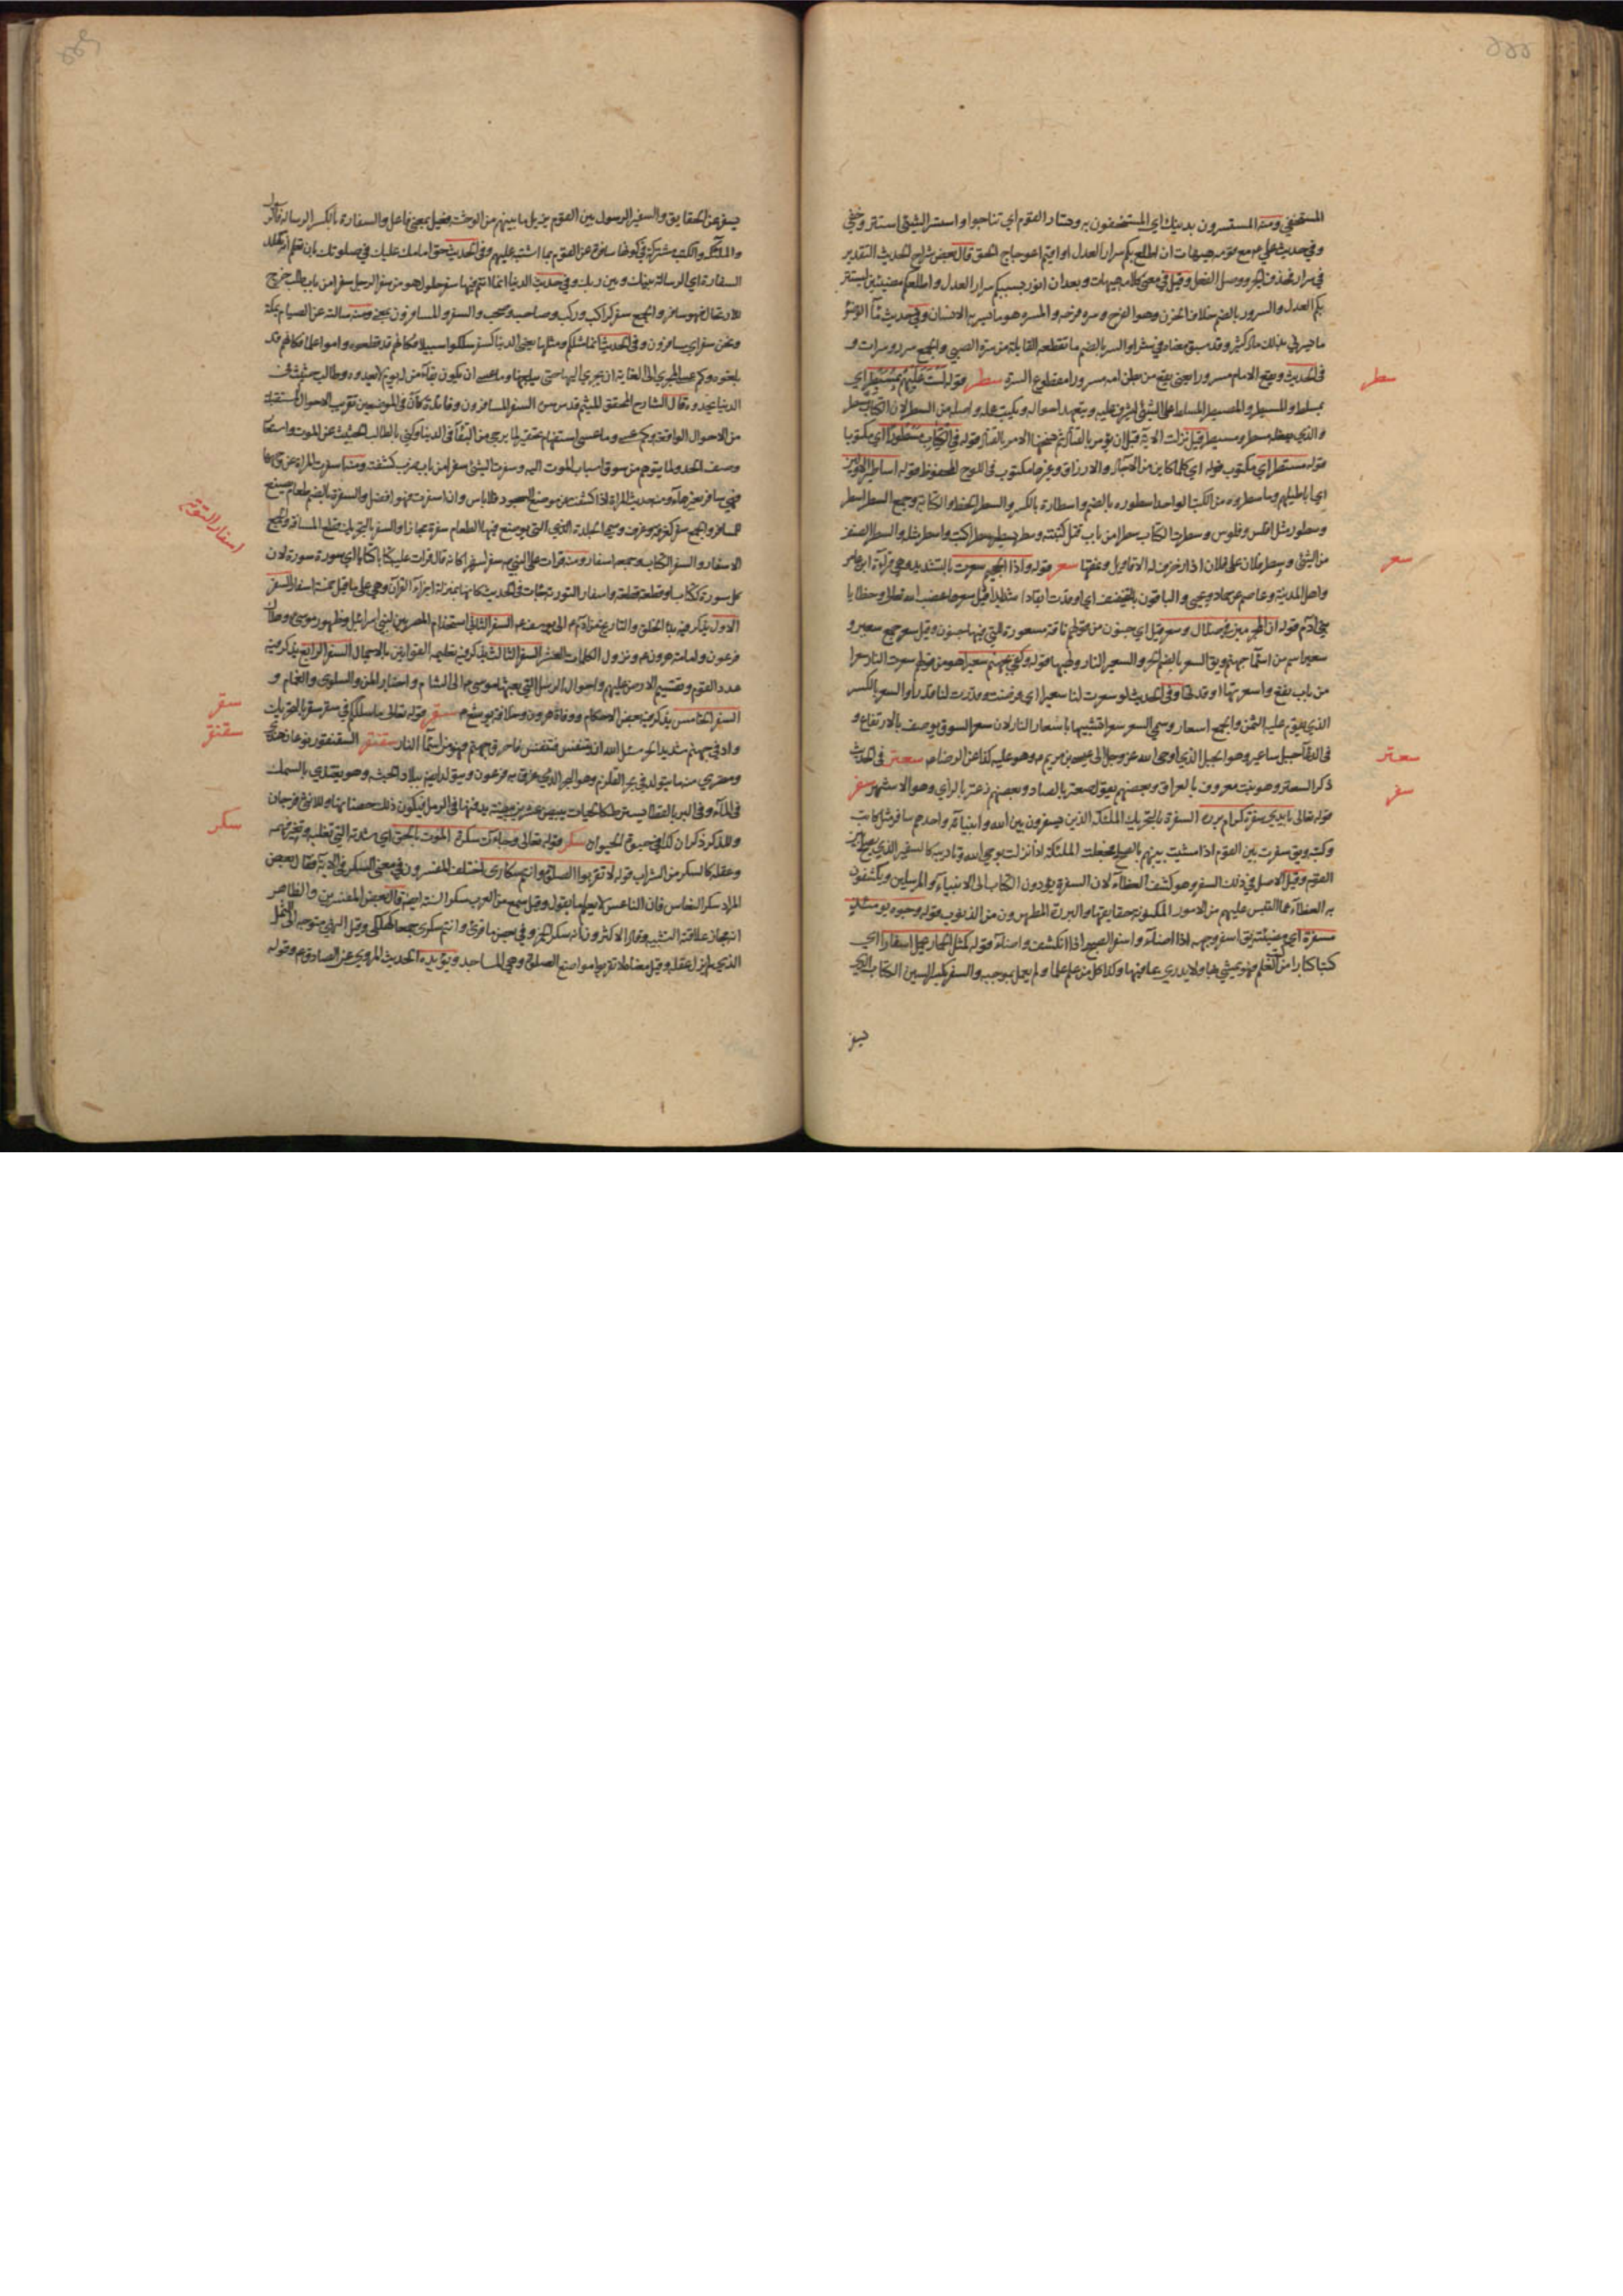 المستخفي ومنه المستسرون بدينك اي المستخفون به وتسار القوم اي تناجوا واستسر الشيئ استتر وخفي
وفي حديث علي ع مع قومه هيهات ان اطلع بكم سرار العدل او اقيم اعوجاج الحق قال بعض شراح الحديث التقدير
في سرار فحذف حرف الجر ووصل الفعل وقيل في معنى كلامه هيهات وبعد ان انور بسببكم سرار العدل واطلعكم مضيئين ليستنر
بكم العدل والسرور بالضم خلاف الحزن وهو الفرح وسره فرحه والمسرة هو ما يسر به الانسان وفي حديث
ما يسرني بذلك مال كثير وقد سبق معناه في شرا والسر بالضم ما تقطعه القابلة من سرة الصبي والجمع سرر وسرات و
في الحديث ويقع الامام مسرورا يعني يقع من بطن امه مسرورا مقطوع السرة سطر قوله لست عليهم بمسيطر اي
بمسلط والمسيطر والمصيطر المسلط على الشيئ ليشرف عليه ويتعهد احواله ويكتب عمله واصله من السطر لان الكتاب سطر
والذي يفعله مسطر ومسيطر قيل نزلت الاية قبل ان يؤمر بالقتال ثم نسخها الامر بالقتال قوله في الكتاب مسطورا اي مكتوبا
قوله مستطر اي مكتوب قوله اي كلما كاين من الاجال والارزاق وغيرها مكتوب في اللوح المحفوظ قوله اساطير الاولين
اي اباطيلهم وما سطروه من الكتب الواحد اسطورة بالضم واسطارة بالكسر والسطر الخط والكتابة وجمع السطر اسطر
وسطور مثل افلس وفلوس وسطرت الكتاب سطرا من باب قتل كتبته وسطر يسطر سطرا كتب واستطر مثله والسطر الصف
من الشئ وسطر فلان على فلان اذا زخرف له الاقاويل ونمقها سعر قوله واذا الجحيم سعرت بالتشديد وهي قراءة ابن عامر
واهل المدينة وعاصم عن حماد ويحيى والباقون بالتخفيف اي اوقدت ايقادا شديدا قيل سعرها غضب الله تعالى وخطايا
بني ادم قوله ان المجرمين في ضلال وسعر قيل اي جنون من قولهم ناقة مسعورة للتي فيها جنون وقيل سعر جمع سعير و
سعير اسم من اسماء جهنم ويق السعر بالضم الحر والسعير النار ولهبها قوله وكفى بجهنم سعيرا هو من قولهم سعرت النار سعرا
من باب نفع واسعرتها اوقدتها وفي الحديث لو سعرت لنا سعيرا اي فرضت وقدرت لنا قدرا والسعر بالكسر
الذي يقوم عليه الثمن والجمع اسعار وسمي السعر سعرا تشبيها باسعار النار لان سعر السوق يوصف بالارتفاع و
في الدعاء جبل ساعير وهو الجبل الذي اوحى الله عز وجل الى عيسى بن مريم ع وهو عليه كذا عن الرضا ع سعتر في الحديث
ذكر السعتر وهو نبت معروف بالعراق وبعضهم يقول صعتر بالصاد وبعضهم زعتر بالزاي وهو الاشهر سفر
قوله تعالى بايدي سفرة كرام بررة السفرة بالتحريك الملئكة الذين يسفرون بين الله وانبيائه واحدهم سافر مثل كاتب
وكتبة ويق سفرت بين القوم اذا مشيت بينهم بالصلح فجعلت الملئكة اذا نزلت بوحي الله وتاديبه كالسفير الذي يصلح بين
القوم وقيل الاصل في ذلك السفر وهو كشف الغطاء لان السفرة يؤدون الكتاب الى الانبياء والمرسلين ويكشفون
به الغطاء عما التبس عليهم من الامور المكنونة حقايقها والبررة المطهرون من الذنوب قوله وجوه يومئذ
مسفرة اي مضيئة يق اسفر وجهه اذا اضاء واسفر الصبح اذا انكشف واضاء قوله كمثل الحمار يحمل اسفارا اي
كتبا كبارا من كتب العلم فهو يمشي بها ولا يدري عما فيها وكذا كل من علم علما ولم يعمل بموجبه والسفر بكسر السين الكتاب الذي
يسفر
سطر
سعر
سعتر
سفر
يسفر عن الحقايق والسفير الرسول بين القوم يزيل ما بينهم من الوحشة فعيل بمعنى فاعل والسفارة بالكسر الرسالة فالرسول
والملئكة والكتب مشتركة في كونها سافرة عن القوم مما اشتبه عليهم وفي الحديث حق امامك عليك في صلوتك بان تعلم انه تقلد
السفارة اي الرسالة بينك وبين ربك وفي حديث الدنيا انما انتم فيها سفر حلول هو من سفر الرجل سفرا من باب طلب خرج
للارتحال فهو سافر والجمع سفر كراكب وركب وصاحب وصحب والسفر والمسافرون بمعنى ومنه سالته عن الصيام بمكة
ونحن سفر اي مسافرون وفي الحديث انما مثلكم ومثلها يعني الدنيا كسفر سلكوا سبيلا فكانهم قد قطعوه واموا علما فكانهم قد
بلغوه وكم عسى المجري الى الغاية ان يجري اليها حتى يبلغها وما عسى ان يكون بقاء من له يوم لا يعدوه وطالب حثيث في
الدنيا يحدوه قال الشارح المحقق الميثم قدس سره السفر المسافرون وفائدة كان في الموضعين تقريب الاحوال المستقبلة
من الاحوال الواقعة وكم عسى وما عسى استفهام تحقير لما يرجى من البقاء في الدنيا وكنى بالطالب الحثيث عن الموت واستعار
وصف الحدو لما يتوهم من سوق اسباب الموت اليه وسفرت الشئ سفرا من باب ضرب كشفته ومنه اسفرت المراة عن وجهها
فهي سافر بغير هاء ومنه حديث المراة اذا كشفت عن موضع السجود فلا باس وان اسفرت فهو افضل والسفرة بالضم طعام يصنع
للمسافر والجمع سفر كغرفة وغرف وسمي الجلدة التي يوضع فيها الطعام سفرة مجازا والسفر بالتحريك قطع المسافة والجمع
الاسفار والسفر الكتاب وجمعه اسفار ومنه قرات على النبي ص سفرا سفرا كانه قال قرات عليه كتابا كتابا اي سورة سورة لان
كل سورة ككتاب او قطعة قطعة واسفار التورية جاءت في الحديث كانها بمنزلة اجزاء القران وهي على ما قيل خمسة اسفار السفر
الاول يذكر فيه بدء الخلق والتاريخ من ادم ع الى يوسف ع السفر الثاني استخدام المصريين لبني اسرائيل وظهور موسى ع وهلاك
فرعون وامامة هرون ع ونزول الكلمات العشر السفر الثالث يذكر فيه تعليم القوانين بالاجمال السفر الرابع يذكر فيه
عدد القوم وتقسيم الارض عليهم واحوال الرسل التي بعثها موسى ع الى الشام واخبار المن والسلوى والغمام و
السفر الخامس يذكر فيه بعض الاحكام ووفاة هرون وخلافة يوشع ع سقر قوله تعالى ما سلككم في سقر سقر بالتحريك
واد في جهنم شديد الحر سئل الله ان يتنفس فتنفس فاحرق جهنم فهو من اسماء النار سقنقر السقنقور نوعان هندي
ومصري منها ما يتولد في بحر القلزم وهو البحر الذي غرق به فرعون ويتولد ايضم ببلاد الحبشة وهو يغتذي بالسمك
في الماء وفي البر بالقطا يسترطه كالحيات يبيض عشرين بيضة يدفنها في الرمل فيكون ذلك حضنا بها وللانثى فرجان
وللذكر ذكران كذا في حيوة الحيوان سكر قوله تعالى وجاءت سكرة الموت بالحق اي شدته التي تغلبه وتغير فهمه
وعقله كالسكر من الشراب قوله لا تقربوا الصلوة وانتم سكارى اختلف المفسرون في معنى السكر في الاية فقال بعض
المراد سكر النعاس فان الناعس لا يعلم ما يقول وقيل سمع من العرب سكر السنة ايضم قال بعض المفسرين والظاهر
انه مجاز علاقته التشبيه وقال الاكثرون انه سكر الخمر وفي بعض ما قرئ وانتم سكرى جمعا كهلكى وقيل النهي متوجه الى الثمل
الذي لم يزل عقله وقيل معناه لا تقربوا مواضع الصلوة وهي المساجد ويؤيده الحديث المروي عن الصادق ع وقوله
اسفار التورية
سقر
سقنقر
سكر